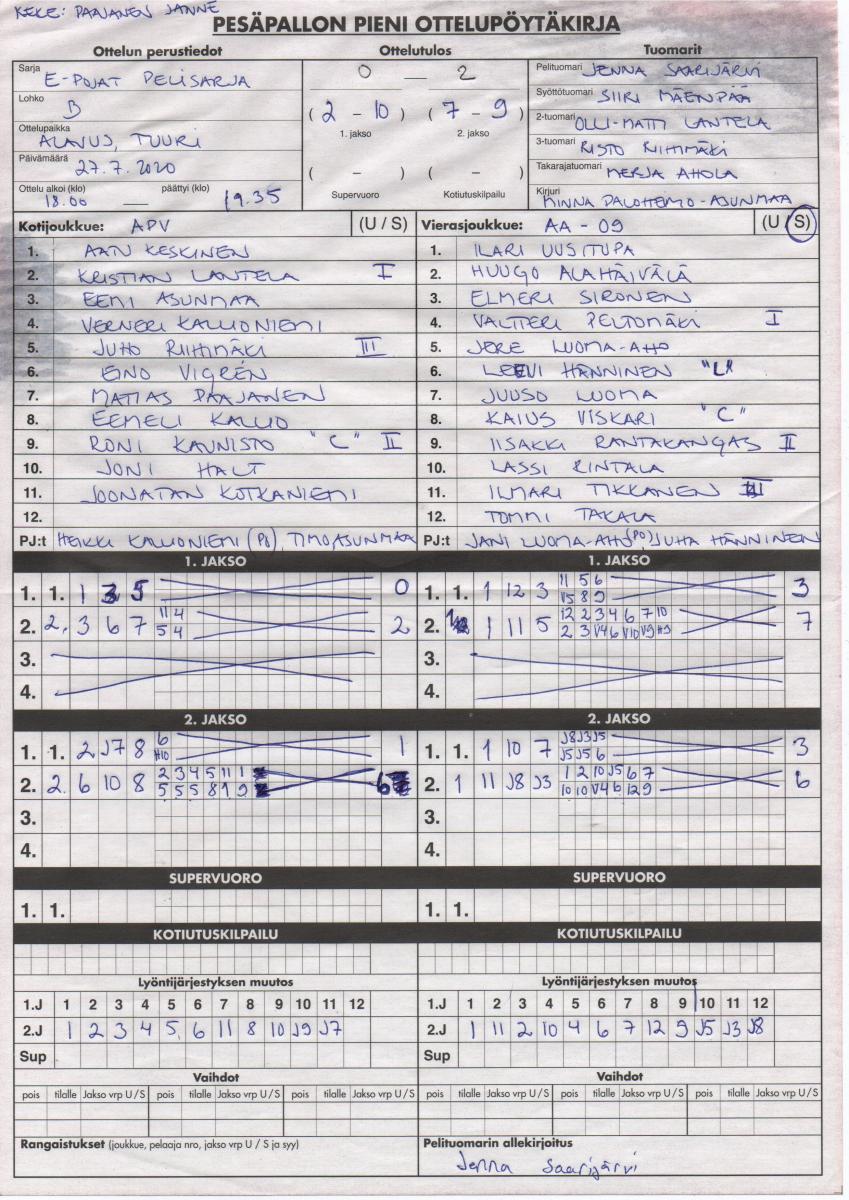 KEKE: PAAJANEN JANNE
PESÄPALLON PIENI OTTELUPÖYTÄKIRJA
Ottelun perustiedot Ottelutulos Tuomarit
Sarja E-POJAT PELISARJA
Lohko B
Ottelupaikka ALAVUS, TUURI
Päivämäärä 27.7.2020
Ottelu alkoi (klo) päättyi (klo)
18.00 — 19.35
0 — 2
(2 - 10) (7 - 9)
1. jakso 2. jakso
( - ) ( - )
Supervuoro Kotiutuskilpailu
Pelituomari JENNA SAARIJÄRVI
Syöttötuomari SIIRI MÄENPÄÄ
2-tuomari OLLI-MATTI LANTELA
3-tuomari RISTO RIIHIMÄKI
Takarajatuomari MERJA AHOLA
Kirjuri MINNA PALOHEIMO-ASUNMAA
Kotijoukkue: APV (U / S)
1. AATU KESKINEN
2. KRISTIAN LANTELA I
3. EEMI ASUNMAA
4. VERNERI KALLIONIEMI
5. JUHO RIIHIMÄKI III
6. EINO VIGRÉN
7. MATIAS PAAJANEN
8. EEMELI KALLIO
9. RONI KAUNISTO "C" II
10. JONI HALT
11. JOONATAN KOTKANIEMI
12.
PJ:t HEIKKI KALLIONIEMI (PO), TIMO ASUNMAA
Vierasjoukkue: AA - 09 (U / S)
1. ILARI UUSITUPA
2. HUUGO ALAHÄIVÄLÄ
3. ELMERI SIRONEN
4. VALTTERI PELTOMÄKI I
5. JERE LUOMA-AHO
6. LEEVI HÄNNINEN "L"
7. JUUSO LUOMA
8. KAIUS VISKARI "C"
9. IISAKKI RANTAKANGAS II
10. LASSI RINTALA
11. ILMARI TIKKANEN III
12. TOMMI TAKALA
PJ:t JANI LUOMA-AHO (PO) JUHA HÄNNINEN
1. JAKSO
1. 1. 1 3 5 0
2. 2. 3 6 7 11 4 2
5 4
3.
4.
1. JAKSO
1. 1. 1 12 3 11 5 6 3
V5 8 9
2. 1 11 5 12 2 3 4 6 7 10 7
2 3 V4 6 V10 V9 H9
3.
4.
2. JAKSO
1. 1. 2 J7 8 6 1
H10
2. 2. 6 10 8 2 3 4 5 11 1 6
5 5 5 8 1 9
3.
4.
2. JAKSO
1. 1. 1 10 7 J8 J3 J5 3
J5 J5 6
2. 1 11 J8 J3 1 2 10 J5 6 7 6
10 10 V4 6 12 9
3.
4.
SUPERVUORO SUPERVUORO
1. 1. 1. 1.
KOTIUTUSKILPAILU KOTIUTUSKILPAILU
Lyöntijärjestyksen muutos
1.J 1 2 3 4 5 6 7 8 9 10 11 12
2.J 1 2 3 4 5 6 11 8 10 J9 J7
Sup
Lyöntijärjestyksen muutos
1.J 1 2 3 4 5 6 7 8 9 10 11 12
2.J 1 11 2 10 4 6 7 12 9 J5 J3 J8
Sup
Vaihdot Vaihdot
pois tilalle Jakso vrp U / S pois tilalle Jakso vrp U / S pois tilalle Jakso vrp U / S
pois tilalle Jakso vrp U / S pois tilalle Jakso vrp U / S pois tilalle Jakso vrp U / S
Rangaistukset (joukkue, pelaaja nro, jakso vrp U / S ja syy)
Pelituomarin allekirjoitus
Jenna Saarijärvi